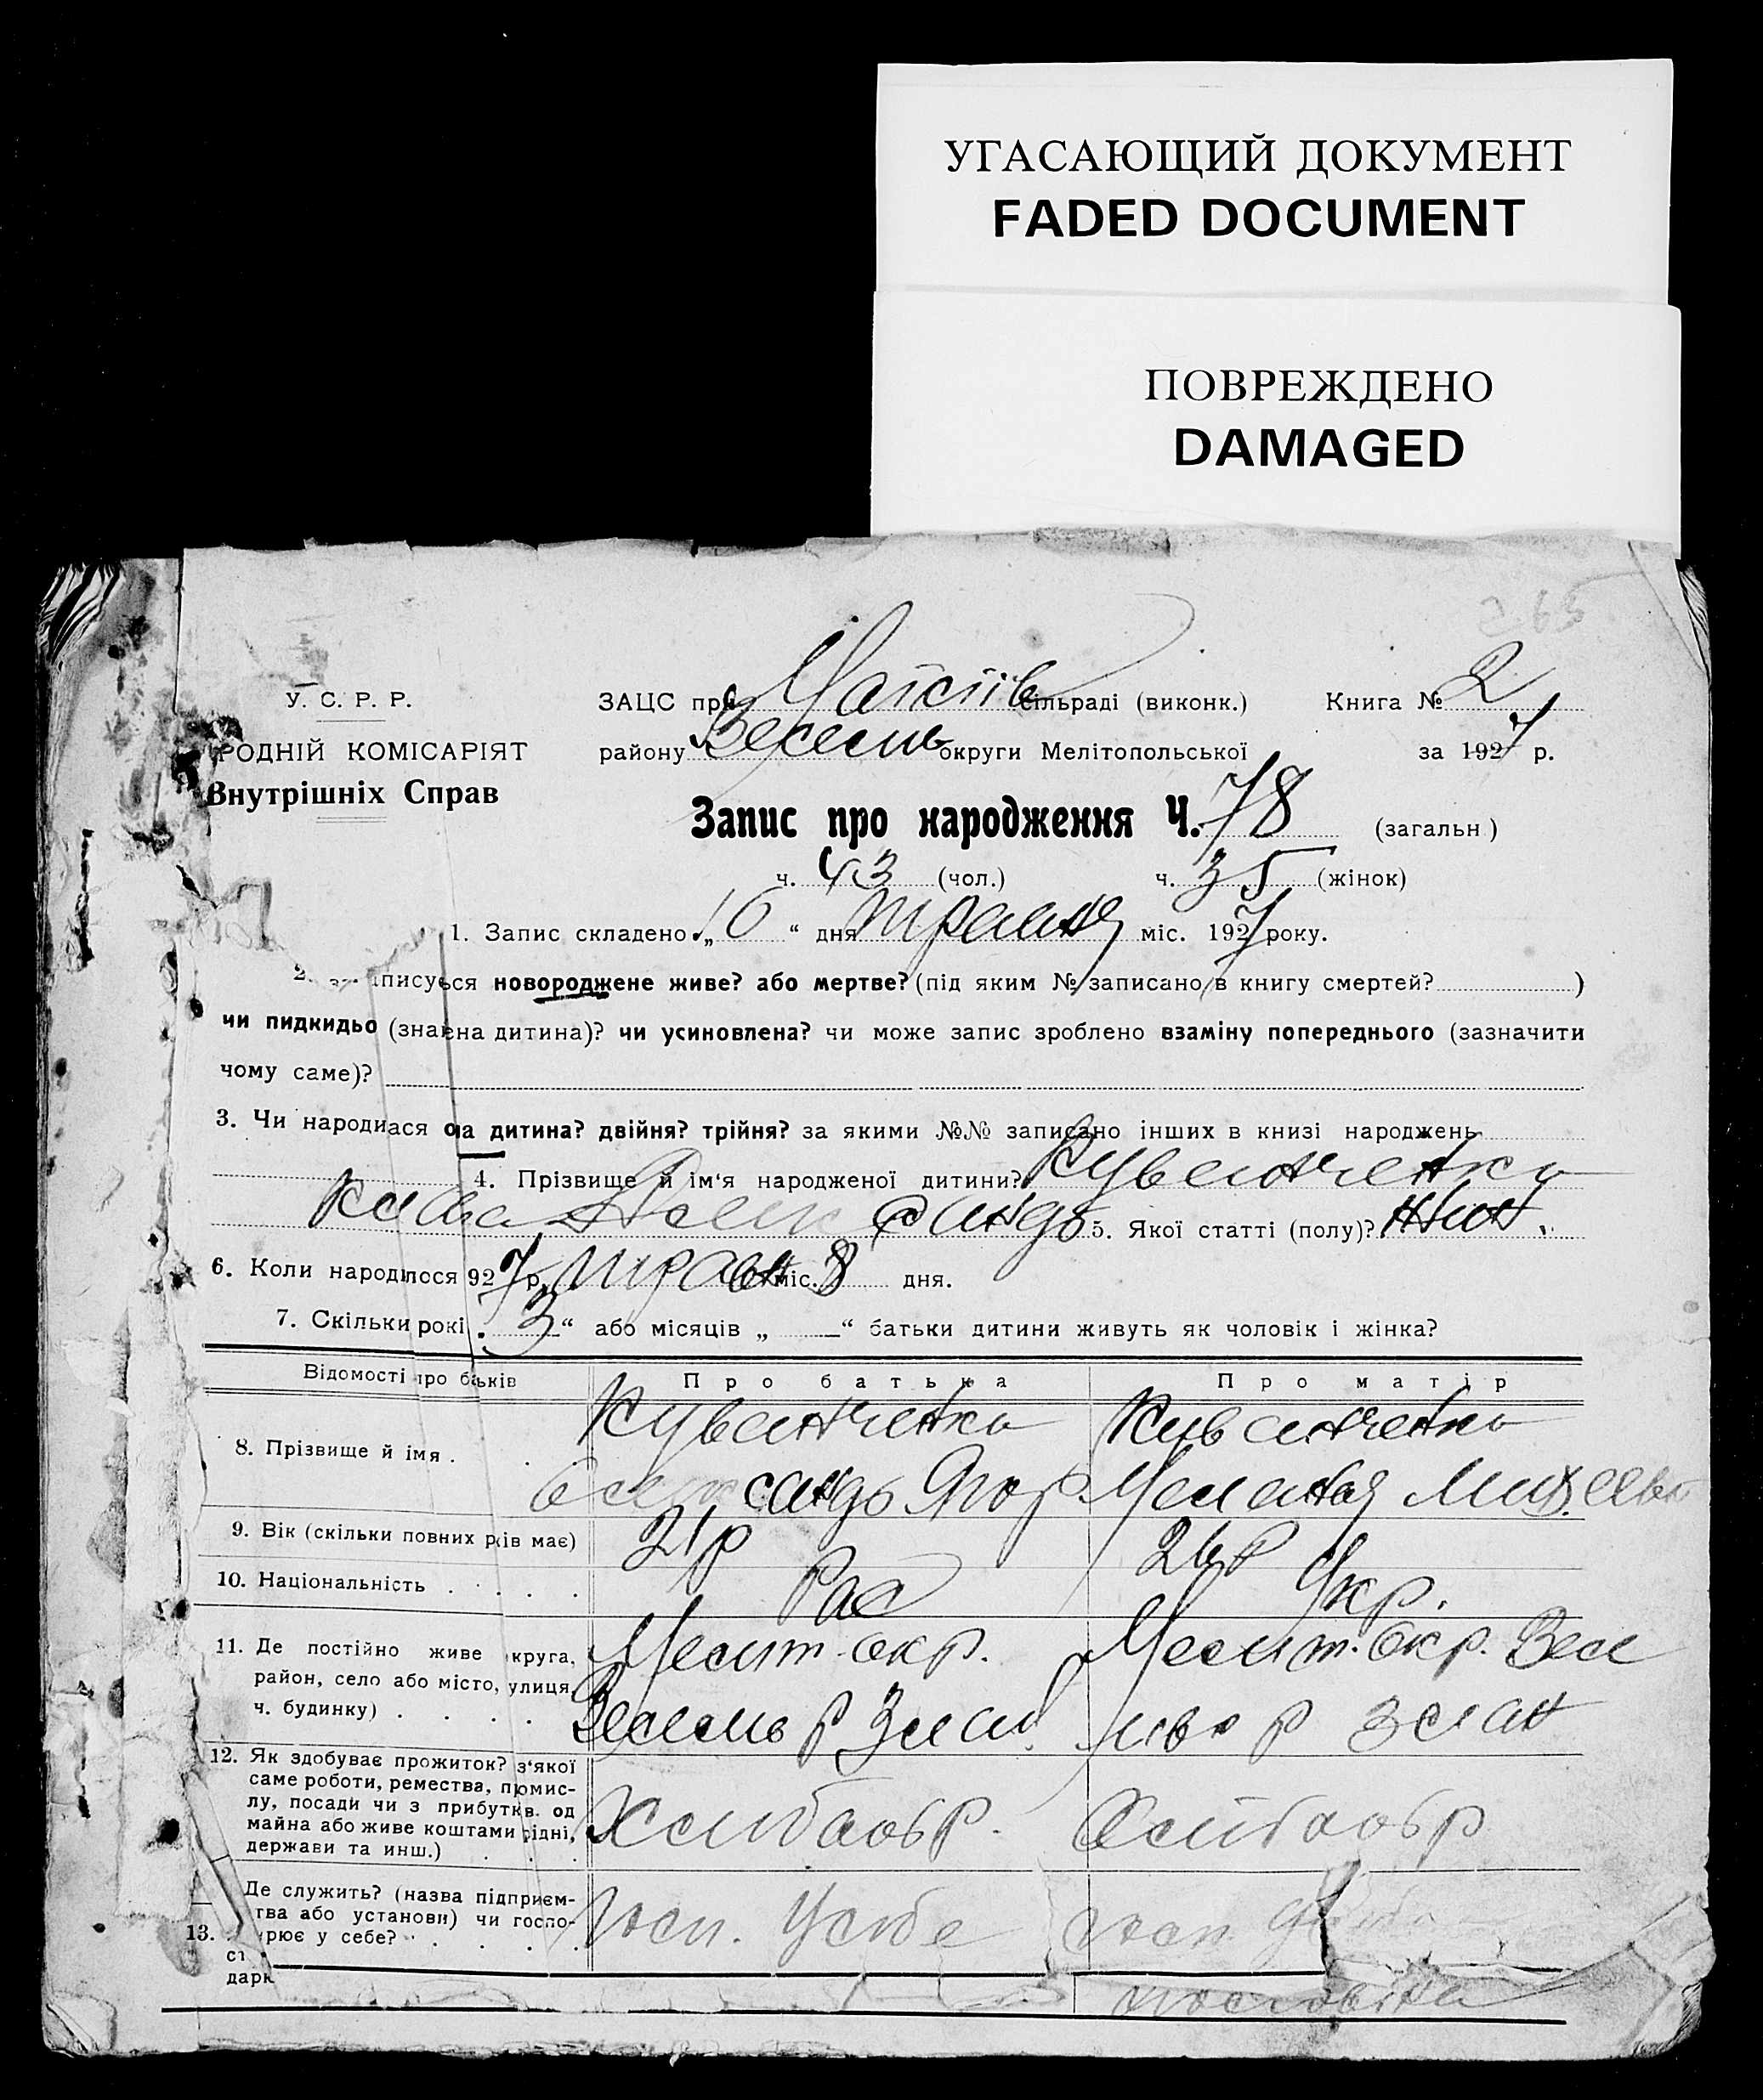 УГАСАЮЩИЙ ДОКУМЕНТ
FADED DOCUMENT
ПОВРЕЖДЕНО
DAMAGED
У. С. Р. Р.
РОДНІЙ КОМІСАРІЯТ
Внутрішніх Справ
ЗАЦС при сільраді (виконк.) Книга № 2
району Весели округи Мелітопольської за 1927 р.
Запис про народження Ч. 78 (загальн)
ч. 43 (чол.) ч. 35 (жінок)
1. Запис складено „10“ дня травня міс. 1927 року.
2. писуься новороджене живе? або мертве? (під яким № записано в книгу смертей? )
чи пидкидьо (знаєна дитина)? чи усиновлена? чи може запис зроблено взаміну попереднього (зазначити
чому саме)?
3. Чи народиася оа дитина? двійня? трійня? за якими №№ записано інших в книзі народжень
4. Прізвище й ім'я народженої дитини? Куванченко
5. Якої статті (полу)? Жин.
6. Коли народілося 927 р. трав міс. 8 дня.
7. Скільки рокі „3“ або місяців „ “ батьки дитини живуть як чоловік і жінка?
Відомості про баьків Про батька Про матір
8. Прізвище й імя . Куванченко Куванченко
сандр Ягор Меланія Михаевн
9. Вік (скільки повних рів має) 21р 24р
10. Національність . . . . . Рос Укр.
11. Де постійно живе круга, Мелит. окр. Мелит. Окр. Весел
район, село або місто, улиця,
ч. будинку) . . . . Весель р
12. Як здобуває прожиток? з'якої
саме роботи, ремества, промис-
лу, посади чи з прибутків. од
майна або живе коштами рідні,
держави та инш.) . . . Хлібообр. Хлібообр
Де служить? (назва підприєм-
тва або установи) чи госпо-
13. рює у себе? . . . . Госп. У себе госп. У
ст
дарк